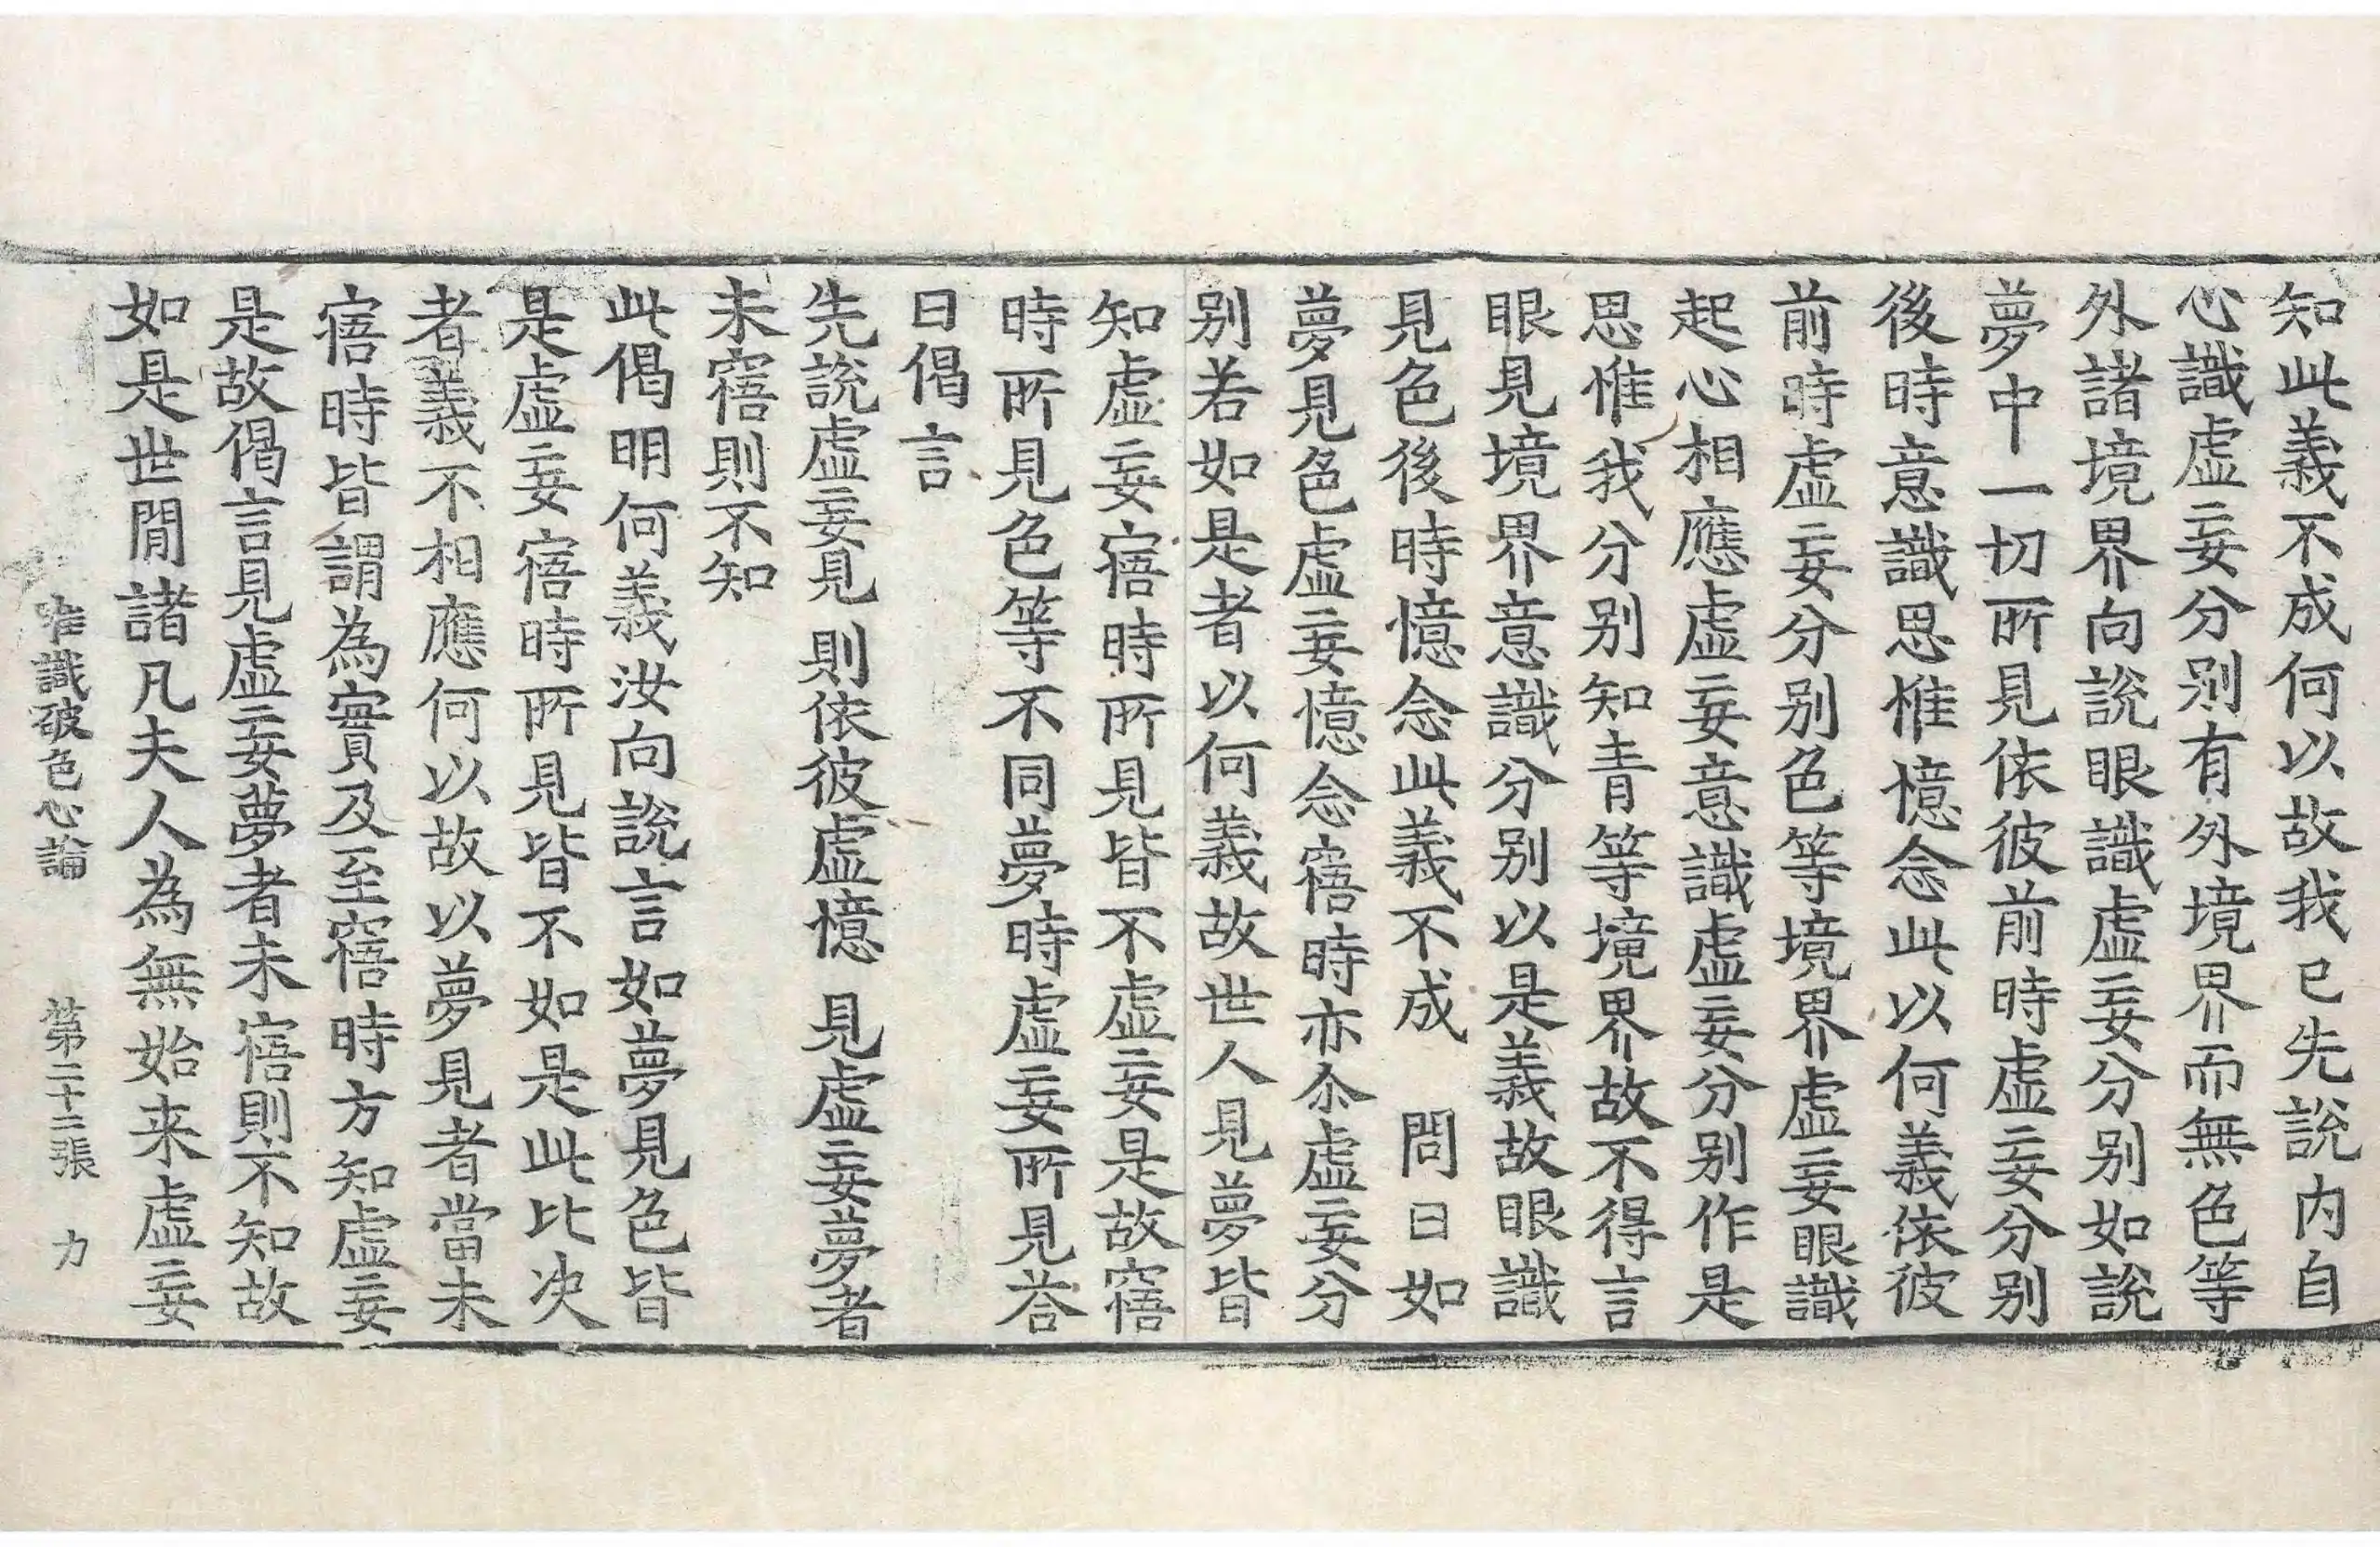 知此義不成何以故我已先說内自
心識虛妄分别有外境界而無色等
外諸境界向說眼識虛妄分别如說
夢中一切所見依彼前時虛妄分别
後時意識思惟憶念此以何義依彼
前時虛妄分别色等境界虛妄眼識
起心相應虛妄意識虛妄分别作是
思惟我分别知青等境界故不得言
眼見境界意識分别以是義故眼識
見色後時憶念此義不成　問曰如
夢見色虛妄憶念寤時亦尒虛妄分
别若如是者以何義故世人見夢皆
知虛妄寤時所見皆不虛妄是故寤
時所見色等不同夢時虛妄所見荅
曰偈言
先說虛妄見　則依彼虛憶　見虛妄夢者
未寤則不知
此偈明何義汝向說言如夢見色皆
是虛妄寤時所見皆不如是此比决
者義不相應何以故以夢見者當未
寤時皆謂為實及至寤時方知虛妄
是故偈言見虛妄夢者未寤則不知故
如是世間諸凡夫人為無始来虛妄
唯識破色心論　第二十二張　力